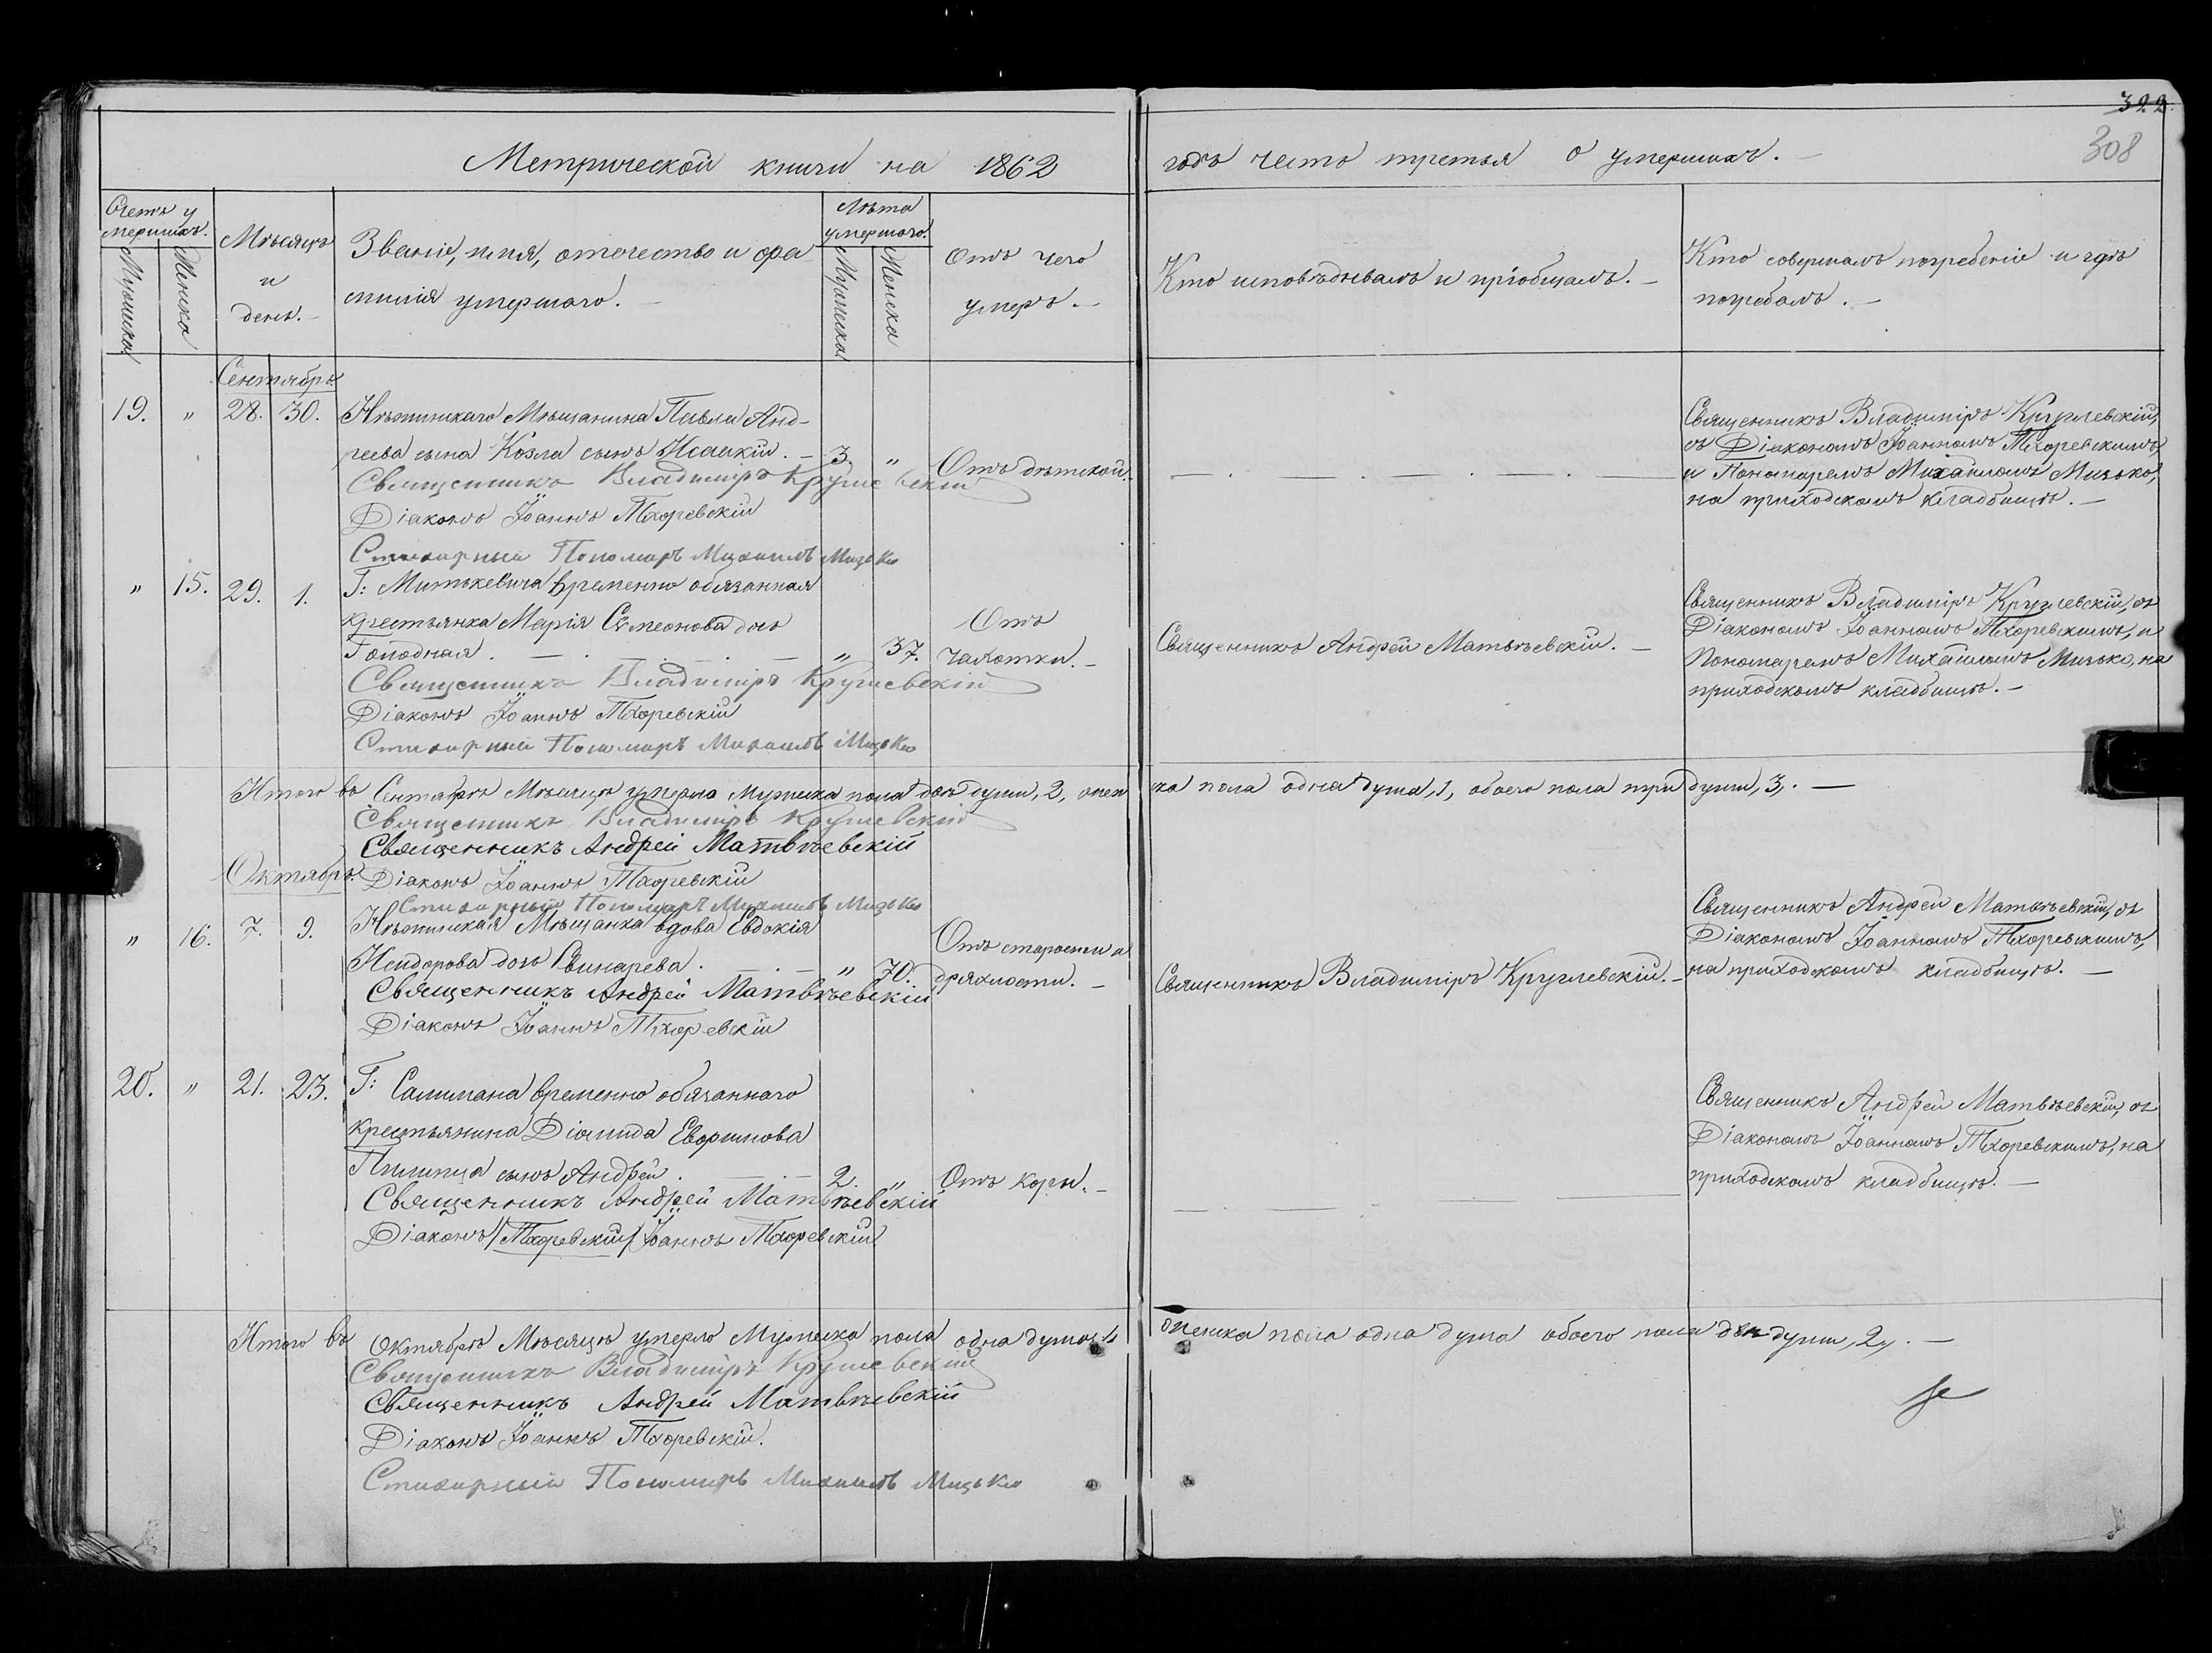 322.
308
Метрической книги на 1862
годъ часть третья о умершихъ. —
Счетъ у
мершихъ.
Мужеска
Женска
Мѣсяцъ
и
день. —
Званіе, имя, отечество и фа
милія умершаго. —
Лѣта
умершаго.
Мужеска
Женска
Отъ чего
умеръ. —
Кто исповѣдывалъ и пріобщалъ. —
Кто совершалъ погребеніе и гдѣ
погребалъ. —
Сентябрь
19. " 28. 30. Нѣжинскаго Мѣщанина Павла Анд-
реева сына Козла сынъ Исаакій. — 3. " Отъ дѣтской.
Священникъ Владиміръ Круглевскій
Діаконъ Іоаннъ Тхоревскій
Стихарный Пономарь Михаилъ Мизько
Священникъ Владиміръ Круглевскій,
съ Діакономъ Іоанномъ Тхоревскимъ,
и Пономаремъ Михаиломъ Мизько,
на приходскомъ кладбищѣ. —
" 15. 29. 1. Г: Митькевича временно обязанная
крестьянка Марія Симеонова дочь
Голодная. — " 37. Отъ
чахотки. —
Священникъ Владиміръ Круглевскій
Діаконъ Іоаннъ Тхоревскій
Стихарный Пономарь Михаилъ Мизько
Священникъ Андрей Матвѣевскій. —
Священникъ Владиміръ Круглевскій, съ
Діакономъ Іоанномъ Тхоревскимъ, и
Пономаремъ Михаиломъ Мизько, на
приходскомъ кладбищѣ. —
Итого въ Сентябрѣ Мѣсяцѣ умерло Мужеска пола двѣ души, 2, жен
ка пола одна душа, 1, обоего пола три души, 3,. —
Священникъ Владиміръ Круглевскій
Священникъ Андрей Матвѣевскій
Октябрь. Діаконъ Іоаннъ Тхоревскій
Стихарный Пономарь Михаилъ Мизько
" 16. 7. 9. Нѣжинская Мѣщанка вдова Евдокія
дочь Свинарева. — " 70. Отъ старости и
дряхлости. —
Священникъ Андрей Матвѣевскій
Діаконъ Іоаннъ Тхоревскій
Священникъ Владиміръ Круглевскій. —
Священникъ Андрей Матвѣевскій, съ
Діакономъ Іоанномъ Тхоревскимъ,
на приходскомъ кладбищѣ. —
20. " 21. 23. Г: временно обязаннаго
крестьянина Діомида
сынъ Андрей. — 2. " Отъ кори. —
Священникъ Андрей Матвѣевскій
Діаконъ /Тхоревскій/ Іоаннъ Тхоревскій
Священникъ Андрей Матвѣевскій, съ
Діакономъ Іоанномъ Тхоревскимъ, на
приходскомъ кладбищѣ. —
Итого въ Октябрѣ Мѣсяцѣ умерло Мужеска пола одна душа, 1,
женска пола одна душа обоего пола двѣ души, 2,. —
Священникъ Владиміръ Круглевскій
Священникъ Андрей Матвѣевскій
Діаконъ Іоаннъ Тхоревскій.
Стихарный Пономарь Михаилъ Мизько